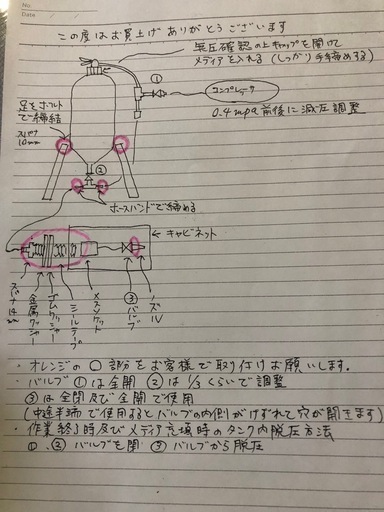 No.
Date
この度はお買上げありがとうございます
無圧確認の上キャップを開けて
メディアを入れる(しっかり手で締める)
①
コンプレッサ
足をボルト
で締結
スパナ
10mm
0.4mpa前後に減圧調整
②
ホースバンドで締める
キャビネット
スパナ14mm
金属ワッシャー
ゴムワッシャー
シールテープ
メスソケット
③バルブ
ノズル
・オレンジの〇部分をお客様で取り付けお願いします.
・バルブ①は全開 ②は1/3くらいで調整
③は全閉及び全開で使用
(中途半端で使用するとバルブの内側がけずれて穴が開きます)
・作業終了時及びメディア充填時のタンク内脱圧方法
①.②バルブを閉 ③バルブから脱圧